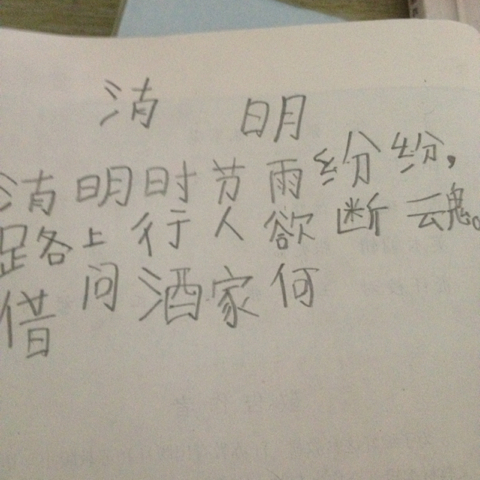 清明
清明时节雨纷纷，
路上行人欲断魂。
借问酒家何